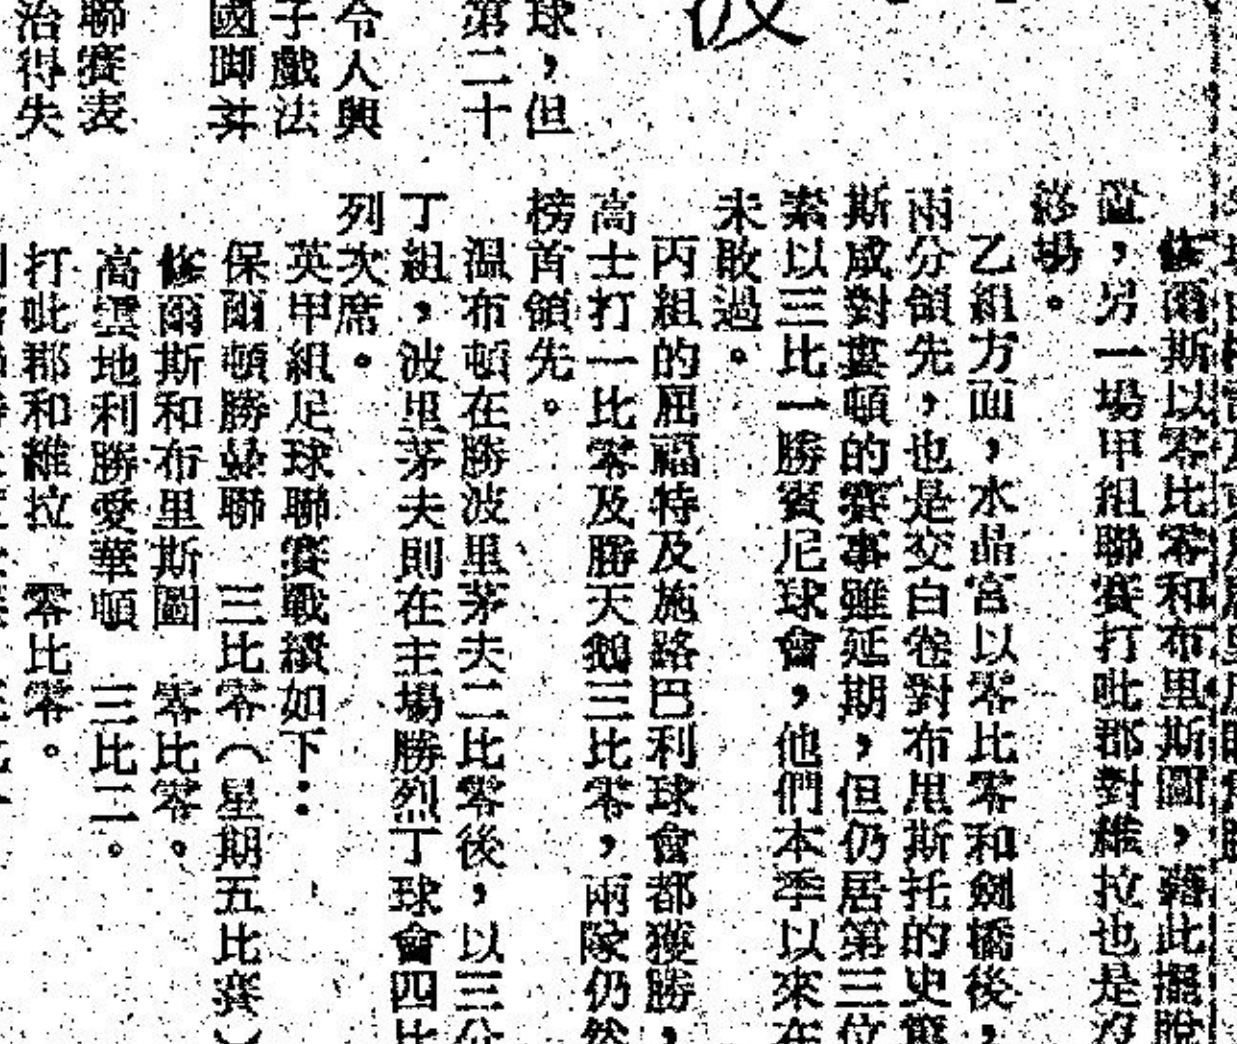 修爾斯以零比零和布里斯圖，藉此擺脫
，另一場甲組聯賽打吡郡對維拉也是沒
場。
乙組方面，水晶宮以零比零和劍橋後，
兩分領先，也是交白卷對布里斯托的史
斯咸對婁頓的賽事雖延期，但仍居第三位
素以三比一勝賓尼球會，他們本季以來在
未敗過。
丙組的屈福特及施路巴利球會都獲勝，
高士打一比零及勝天鵝三比零，兩隊仍然
榜首領先。
溫布頓在勝波里茅夫二比零後，以三分
丁組，波里茅夫則在主場勝烈丁球會四比
列次席。
英甲組足球聯賽戰績如下：
保爾頓勝曼聯　三比零（星期五比賽）
修爾斯和布里斯圖　零比零。
高雲地利勝愛華頓　三比二。
打吡郡和維拉　零比零。
波
球，但
第二十
令人興
子戲法
國脚
聯賽表
治得失